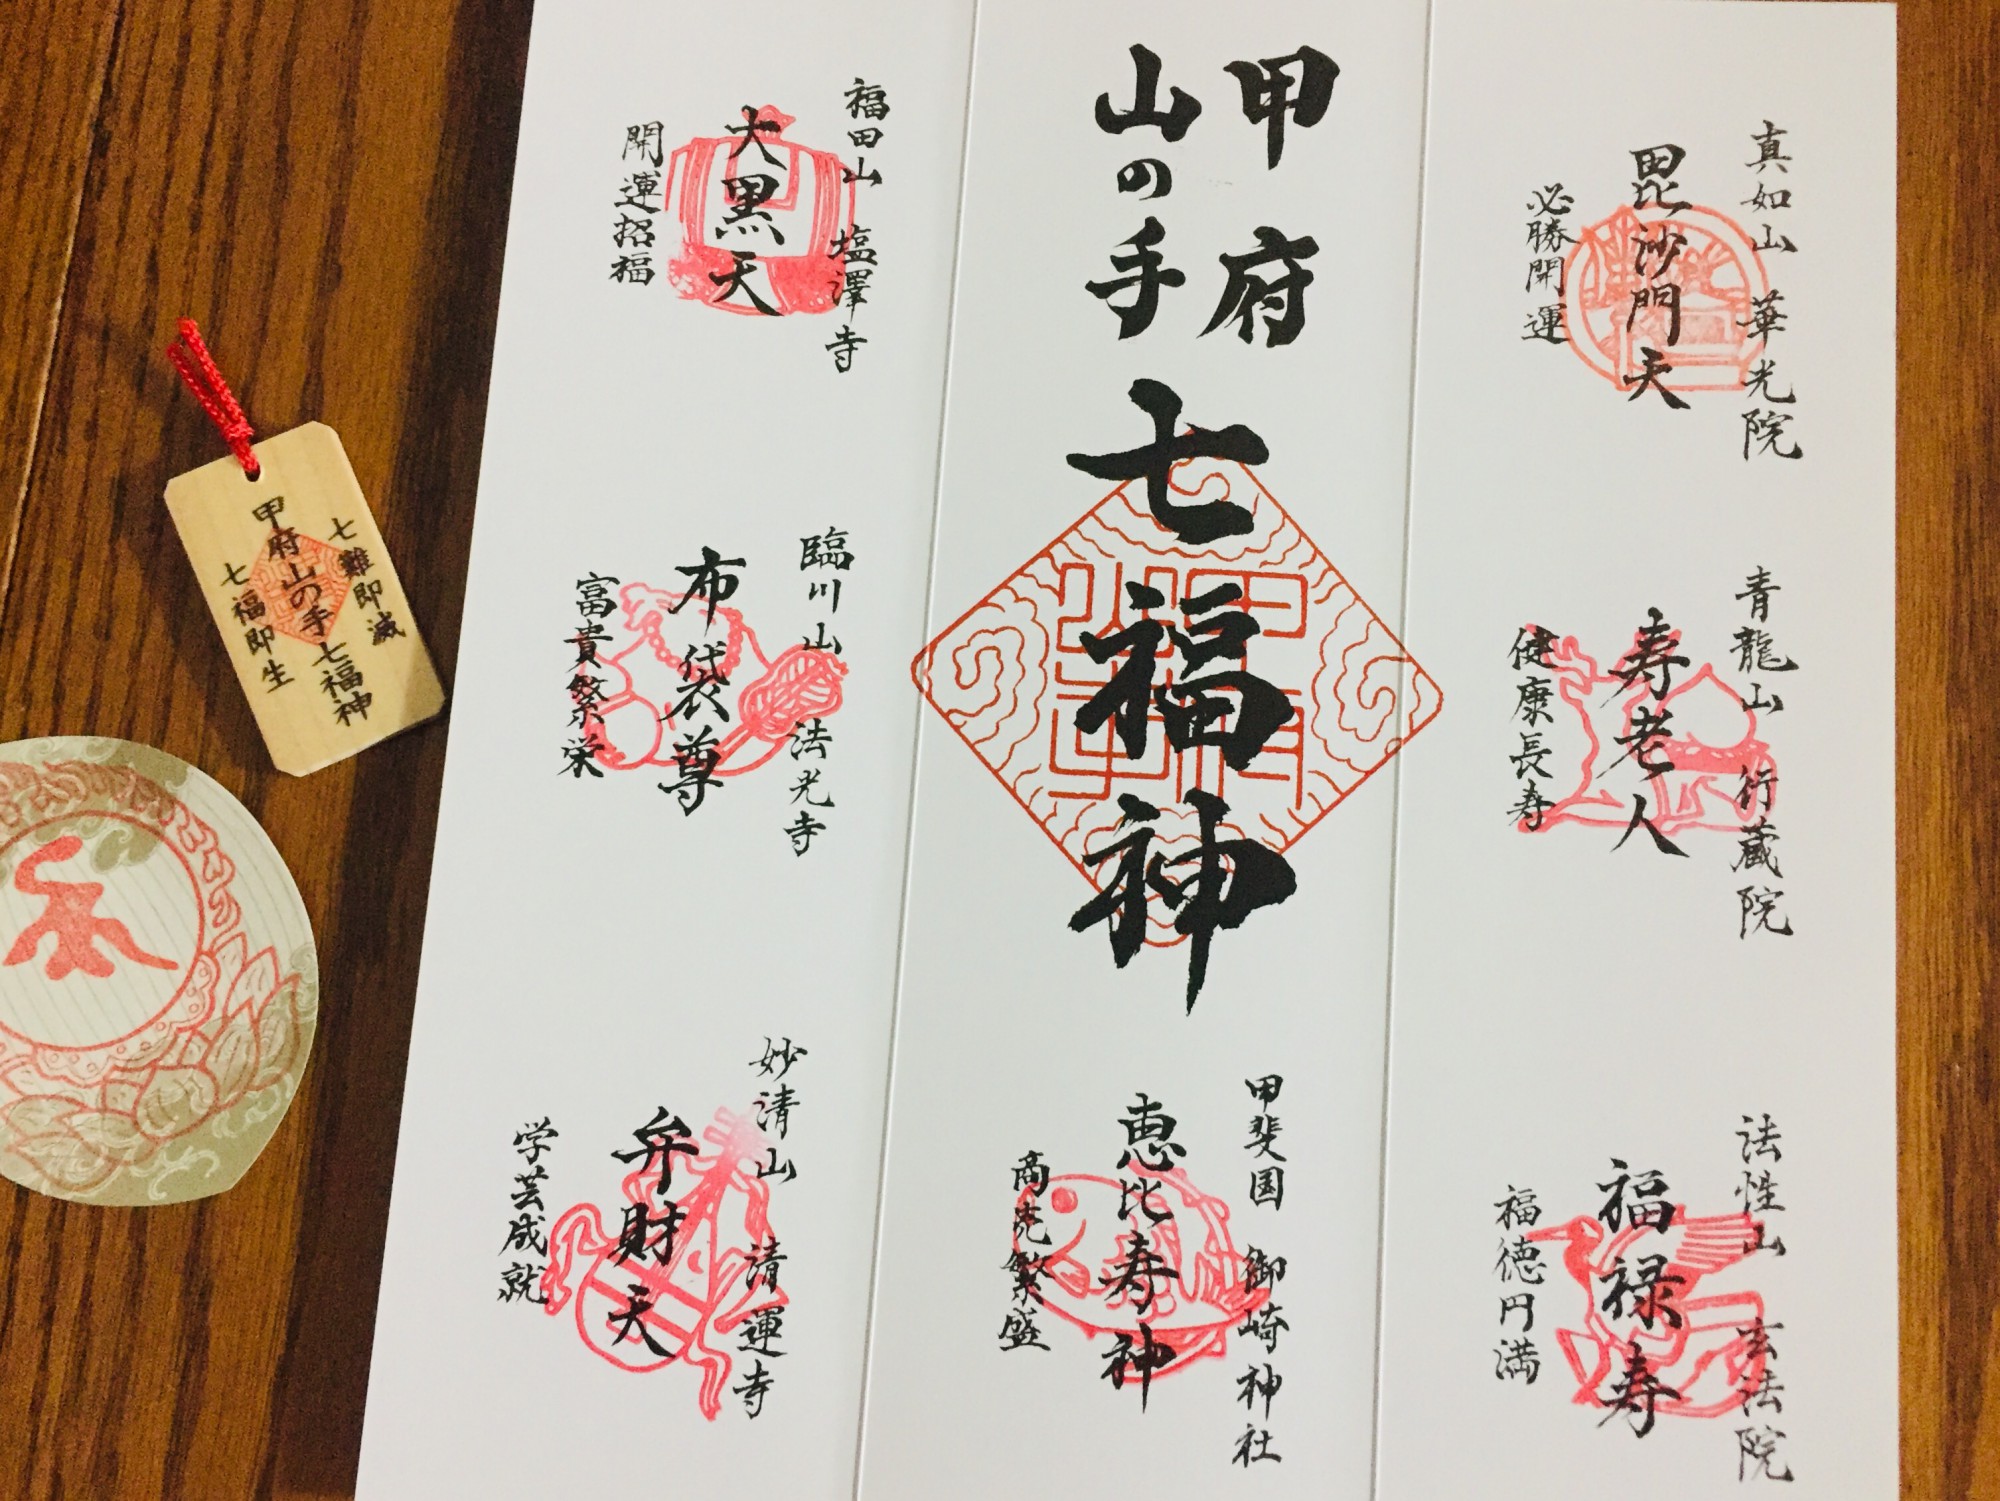 真如山 華光院
毘沙門天
必勝開運
青龍山 行蔵院
寿老人
健康長寿
法性山 玄法院
福禄寿
福徳円満
甲府
山の手
七福神
甲斐国 御崎神社
恵比寿神
商売繁盛
福田山 塩澤寺
大黒天
開運招福
臨川山 法光寺
布袋尊
富貴繁栄
妙清山 清運寺
弁財天
学芸成就
七難即滅
甲府山の手七福神
七福即生